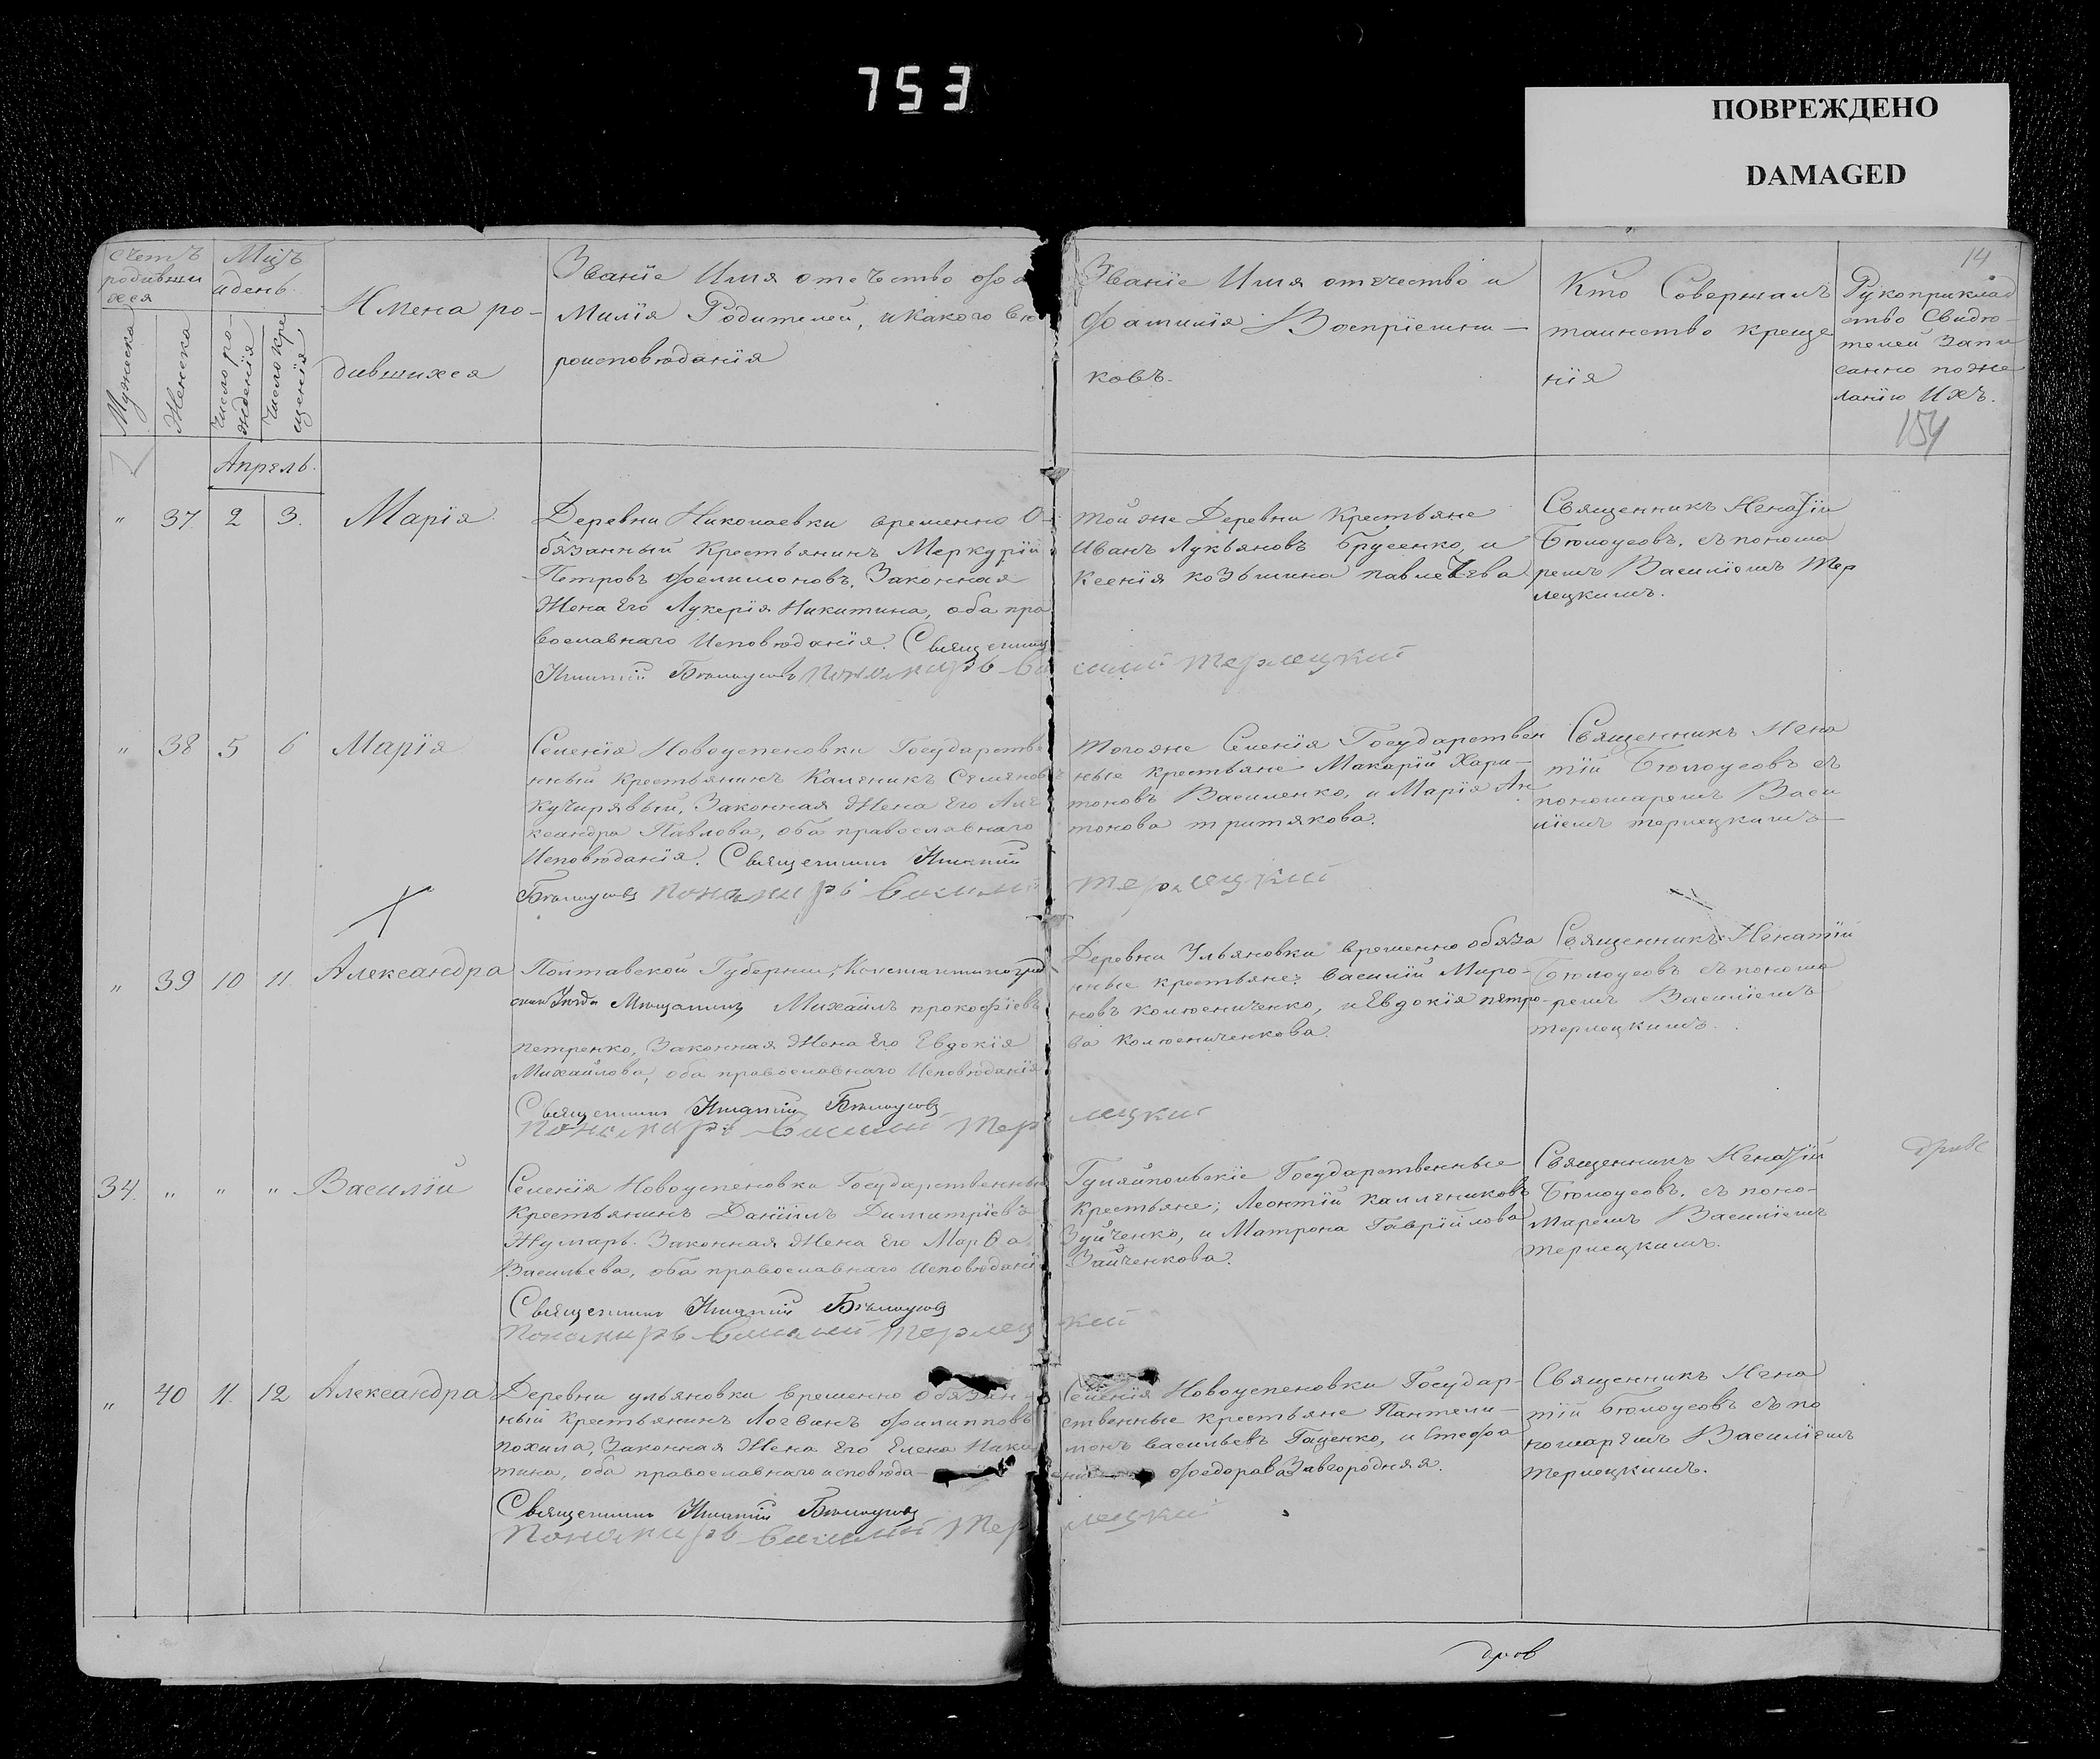 753
ПОВРЕЖДЕНО
DAMAGED
14
Счетъ родивши хся
Мцъ и день.
Имена ро-
дившихся
Званіе Имя отечъство Фа
милія Родителей, и какого вѣ
роисповѣданія
Званіе Имя отечество и
Фамилія Воспріемни-
ковъ.
Кто Совершалъ
таинство креще
нія
Рукоприклад
ство Свидѣ-
телей запи
санно поже
ланію Ихъ.
154
Мужеска
Женска
Число ро-
жденія
Число кре
щенія
Апрель.
" 37. 2 3. Марія
Деревни Николаевки временно О-
бязанный Крестьянинъ Меркурій
Петровъ Филимоновъ, Законная
Жена Его Лукерія Никитина, оба пра
вославнаго Исповѣданія. Священникъ
Игнатій Бѣлоусовъ Пономарь Ва
той же Деревни Крестьяне
Иванъ Лукьяновъ Брусенко, и
Ксенія козьмина
силій Терлецкій
Священникъ Игнатій
Бѣлоусовъ, съ понома
ремъ Василіемъ Тер
лецкимъ.
" 38 5 6 Марія
Селенія Новоуспеновки Государстве
нный крестьянинъ Каленикъ Семянов
Кучирявый, Законная Жена Его Але
ксандра Павлова, оба православнаго
Исповѣданія. Священникъ Игнатій
Бѣлоусовъ пономарь Василій
того же Селенія Государствен
ные крестьяне Макарій Хари-
тоновъ Василенко, и Марія Ан
тонова тритякова.
Терлецкій
Священникъ Игна
тій Бѣлоусовъ съ
пономаремъ Васи
ліемъ терлецкимъ
" 39 10 11. Александра
Полтавской Губерніи, Константиноград
скаго Уѣзда Мѣщанинъ Михаилъ прокофіевъ
петренко, Законная Жена Его Евдокія
Михайлова, оба православнаго Исповѣданія
Священникъ Игнатій Бѣлоусовъ
Пономарь Василий Тер
Деревни Ульяновки временно обяза
нные крестьяне: Василій Миро-
новъ колюсниченко, и Евдокія петро-
ва Колюсниченкова.
лецкій
Священникъ Игнатій
Бѣлоусовъ съ понома
ремъ Василіемъ
терлецкимъ.
34. " " " Василій
Селенія Новоуспеновки Государственный
Крестьянинъ Даніилъ Димитріевъ
Жумарь. Законная Жена Его Марѳа
Васильева, оба православнаго Исповѣдані
Священникъ Игнатій Бѣлоусовъ
Пономарь Василій Терлец
Гуляйпольскіе Государственные
Крестьяне; Леонтій каллениковъ
Зуйченко, и Матрона Гаврійлова
Зайченкова.
кій
Священникъ Игнатій
Бѣлоусовъ. съ поно-
маремъ Василіемъ
терлецкимъ.
" 40 11. 12 Александра
Деревни ульяновки временно обязан-
ный Крестьянинъ Логвинъ Филипповъ
похила, Законная Жена Его Елена Ники
тина, оба православнаго исповѣда-
Священникъ Игнатій Бѣлоусовъ
Пономарь Василій Тер
Селенія Новоуспеновки Государ-
ственные крестьяне Пантели-
монъ васильевъ Гаценко, и Стефа
Федорава Завгородняя.
лецкій
Священникъ Игна
тій Бѣлоусовъ съ по
номаремъ Василіемъ
терлецкимъ.